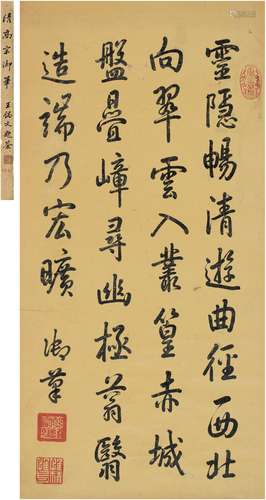 靈隱暢清遊曲徑西北
向翠雲入叢篁赤城
盤疊嶂尋幽極蓊翳
造端乃宏曠
御筆
清高宗御筆